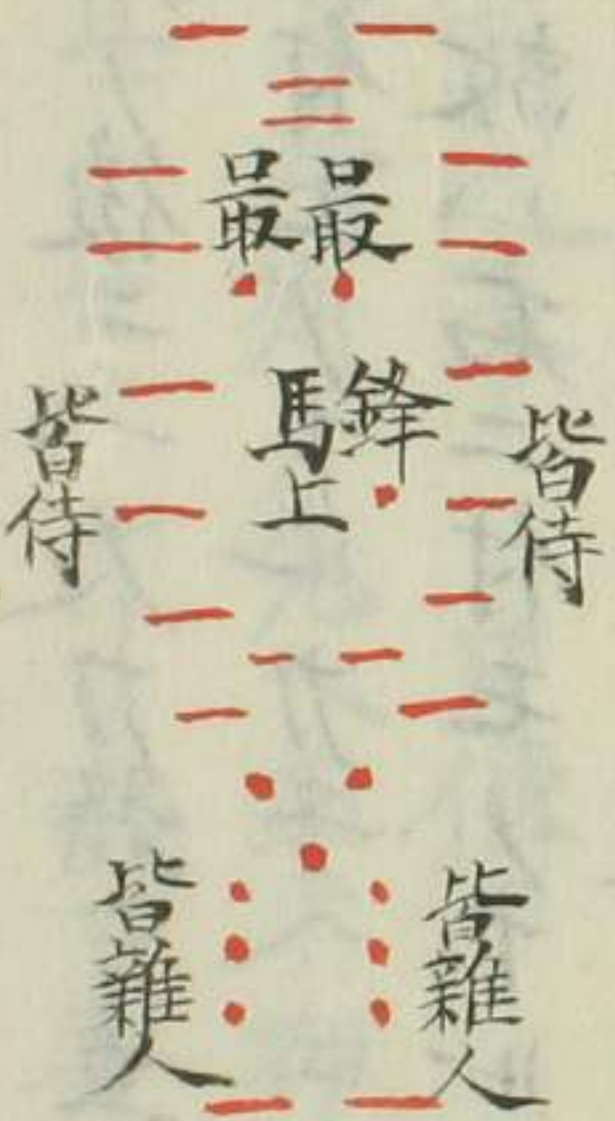 最
最
鋒
馬上
皆侍
皆侍
皆雜人
皆雜人